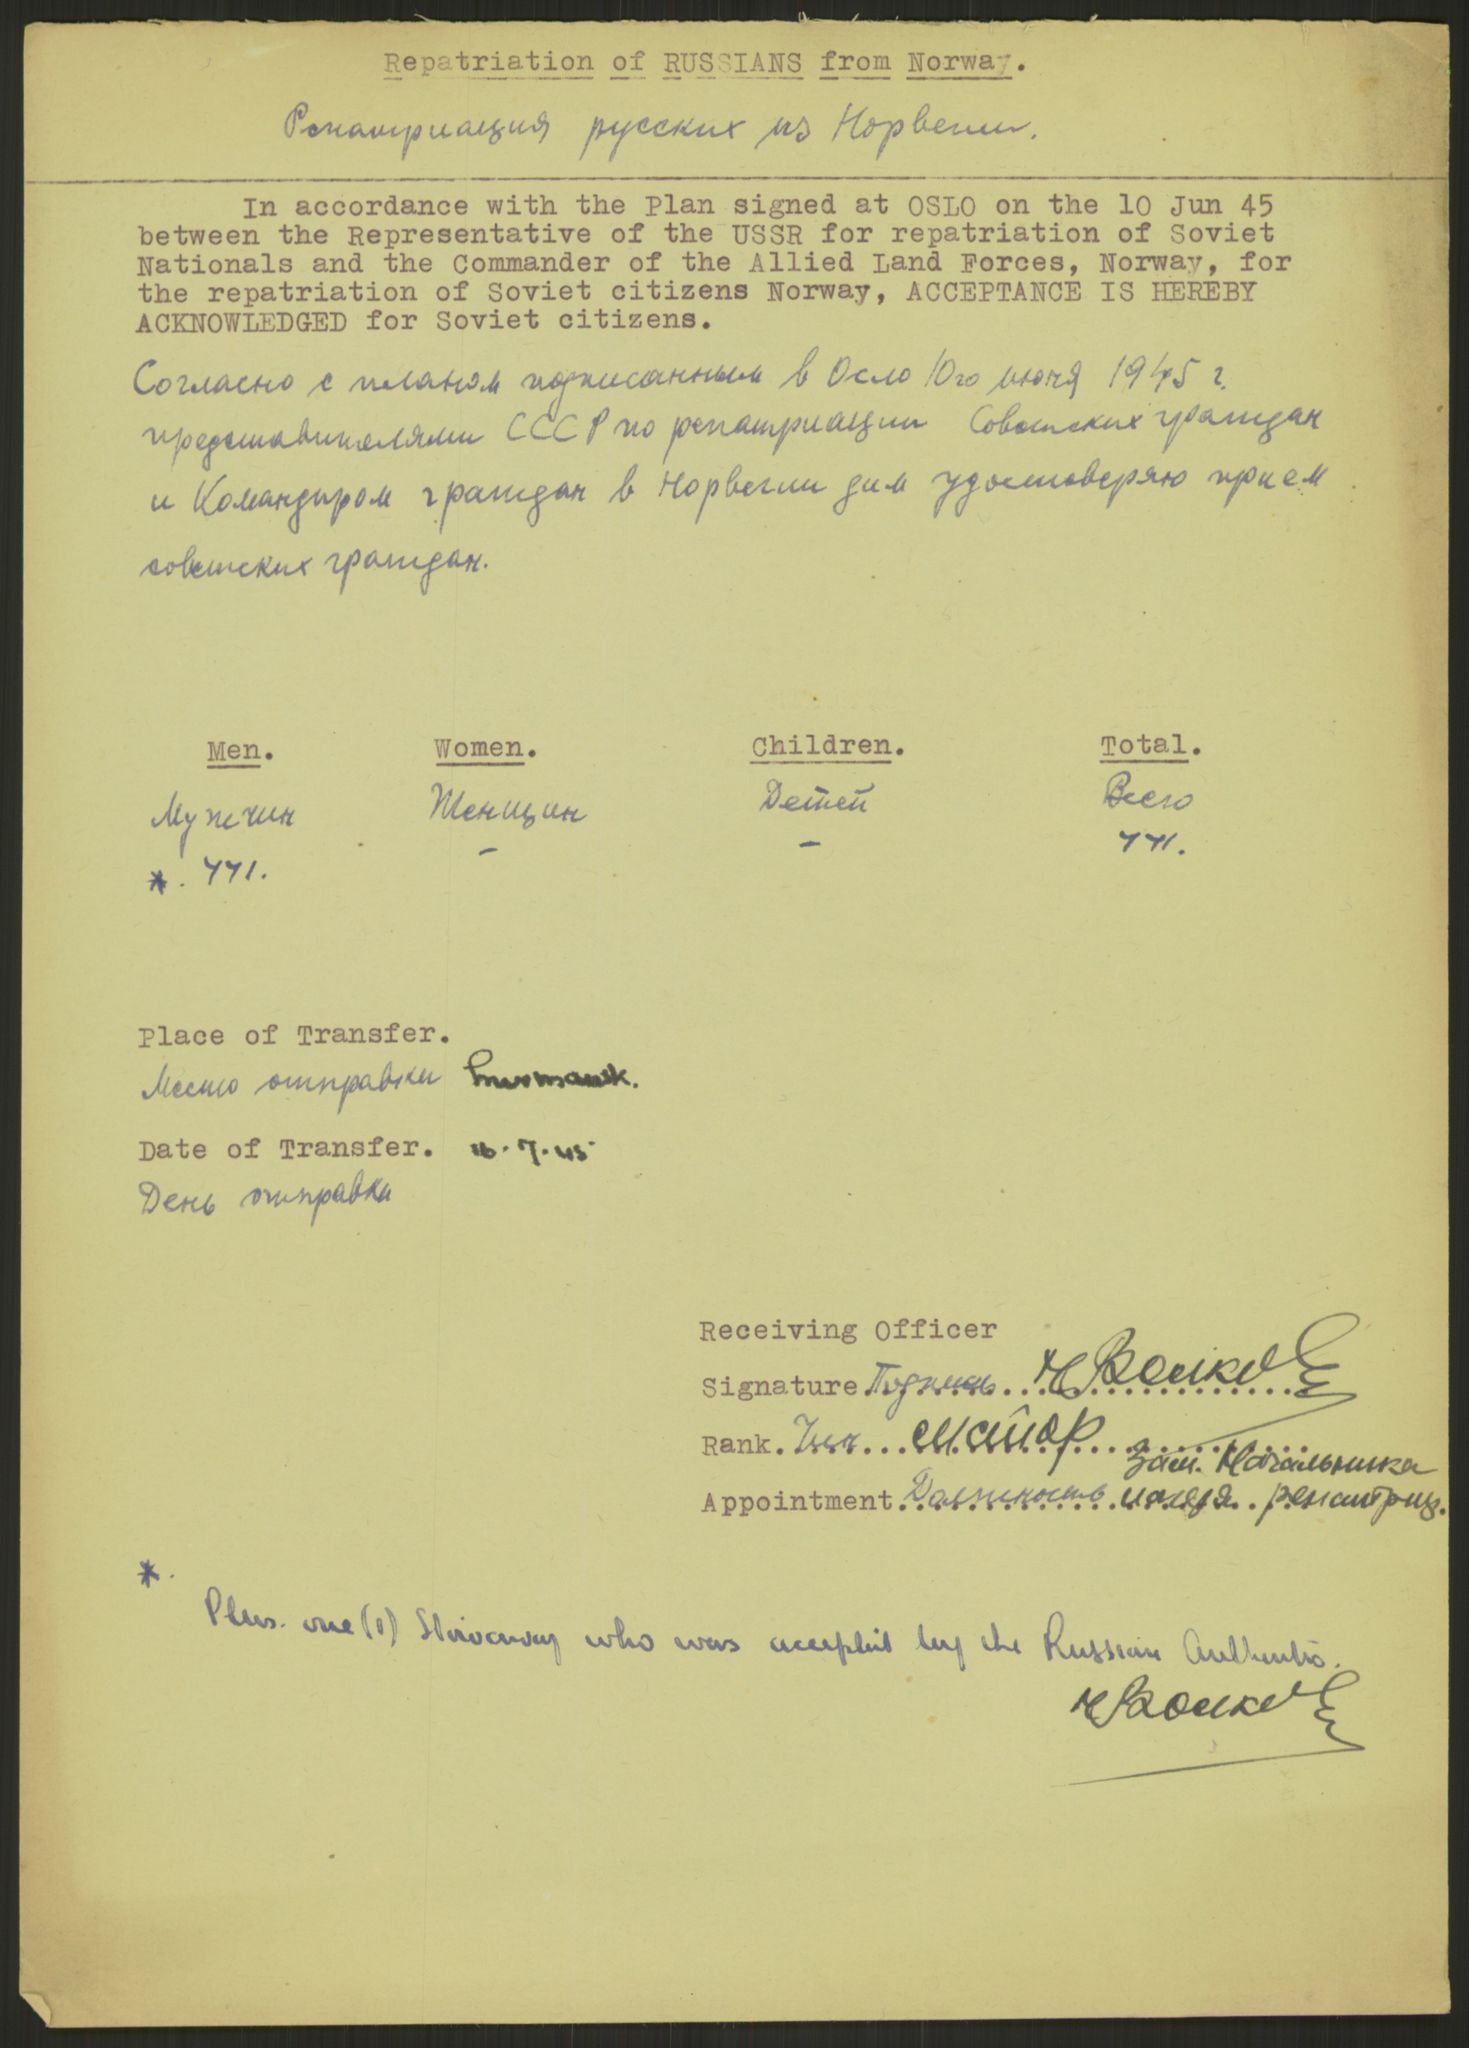 Repatriation of RUSSIANS from Norway.
Репатриация русских из Норвегии.
In accordance with the Plan signed at OSLO on the 10 Jun 45
between the Representative of the USSR for repatriation of Soviet
Nationals and the Commander of the Allied Land Forces, Norway, for
the repatriation of Soviet citizens Norway, ACCEPTANCE IS HEREBY
ACKNOWLEDGED for Soviet citizens.
Согласно с планом подписанным в Осло 10го июня 1945 г.
представителями СССР по репатриации Советских граждан
и Командиром граждан в Норвегии дим удостоверяю прием
советских граждан.
Men. Women. Children. Total.
Мужчин Женщин Детей Всего
*. 441. - - 441.
Place of Transfer.
Место отправки Murmansk.
Date of Transfer. 16.7.45
День отправки
Receiving Officer
Signature Подпись Волков
Rank. Чин майор
зам. Начальника
Appointment. Должность лагеря репатриц.
*.
Plus. one (1) Stowaway who was accepted by the Russian
Волков